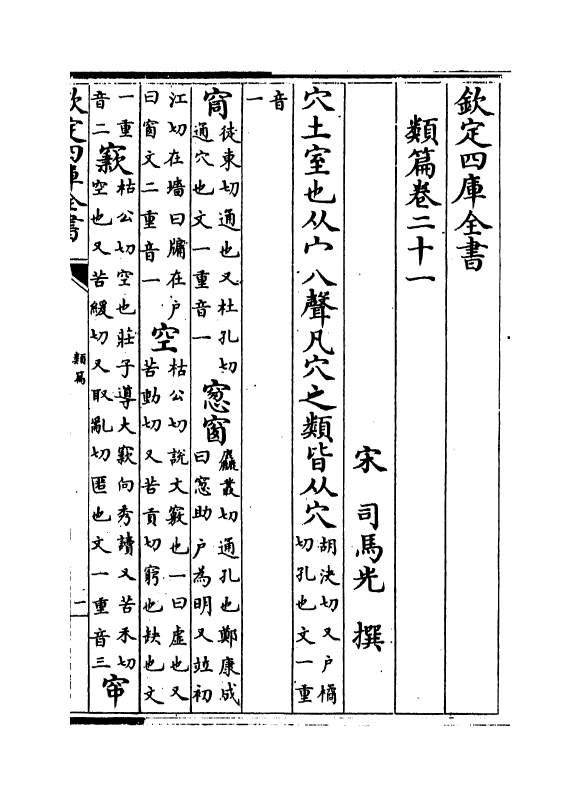 欽定四庫全書
類篇卷二十一
宋 司馬光 撰
穴土室也从宀八聲凡穴之類皆从穴胡決切又戶橘
切孔也文一重
音
一
𥥈徒東切通也又杜孔切
通穴也文一重音一
窻窗麤叢切通孔也鄭康成
曰窻助戶為明又竝初
江切在墻曰牖在戶
曰窗文二重音一
空枯公切說文竅也一曰虛也又
苦動切又苦貢切窮也缺也文
一重
音二
窾枯公切空也莊子導大窾向秀讀又苦禾切
空也又苦緩切又取亂切匿也文一重音三
帘
欽定四庫全書
類篇
一